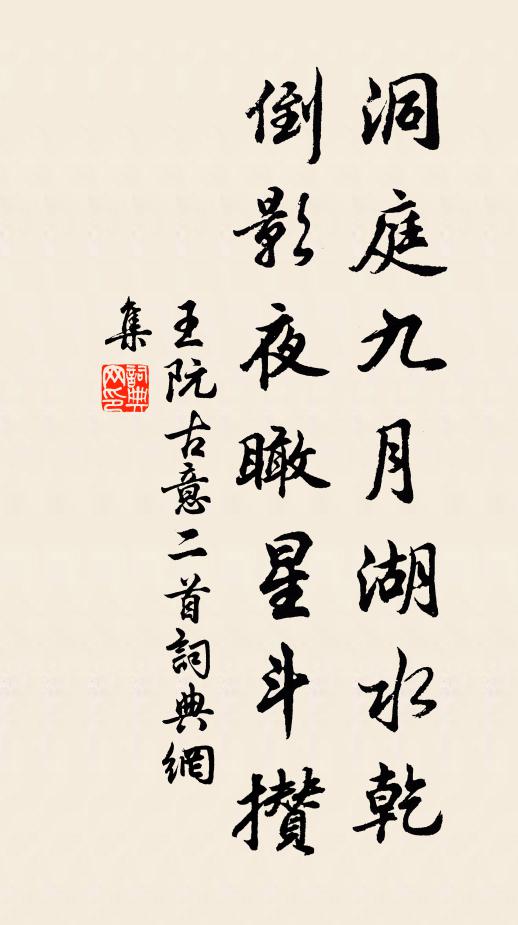 洞庭九月湖水乾
倒影夜瞰星斗攢
王阮古意二首詞典網
集
詞典網印